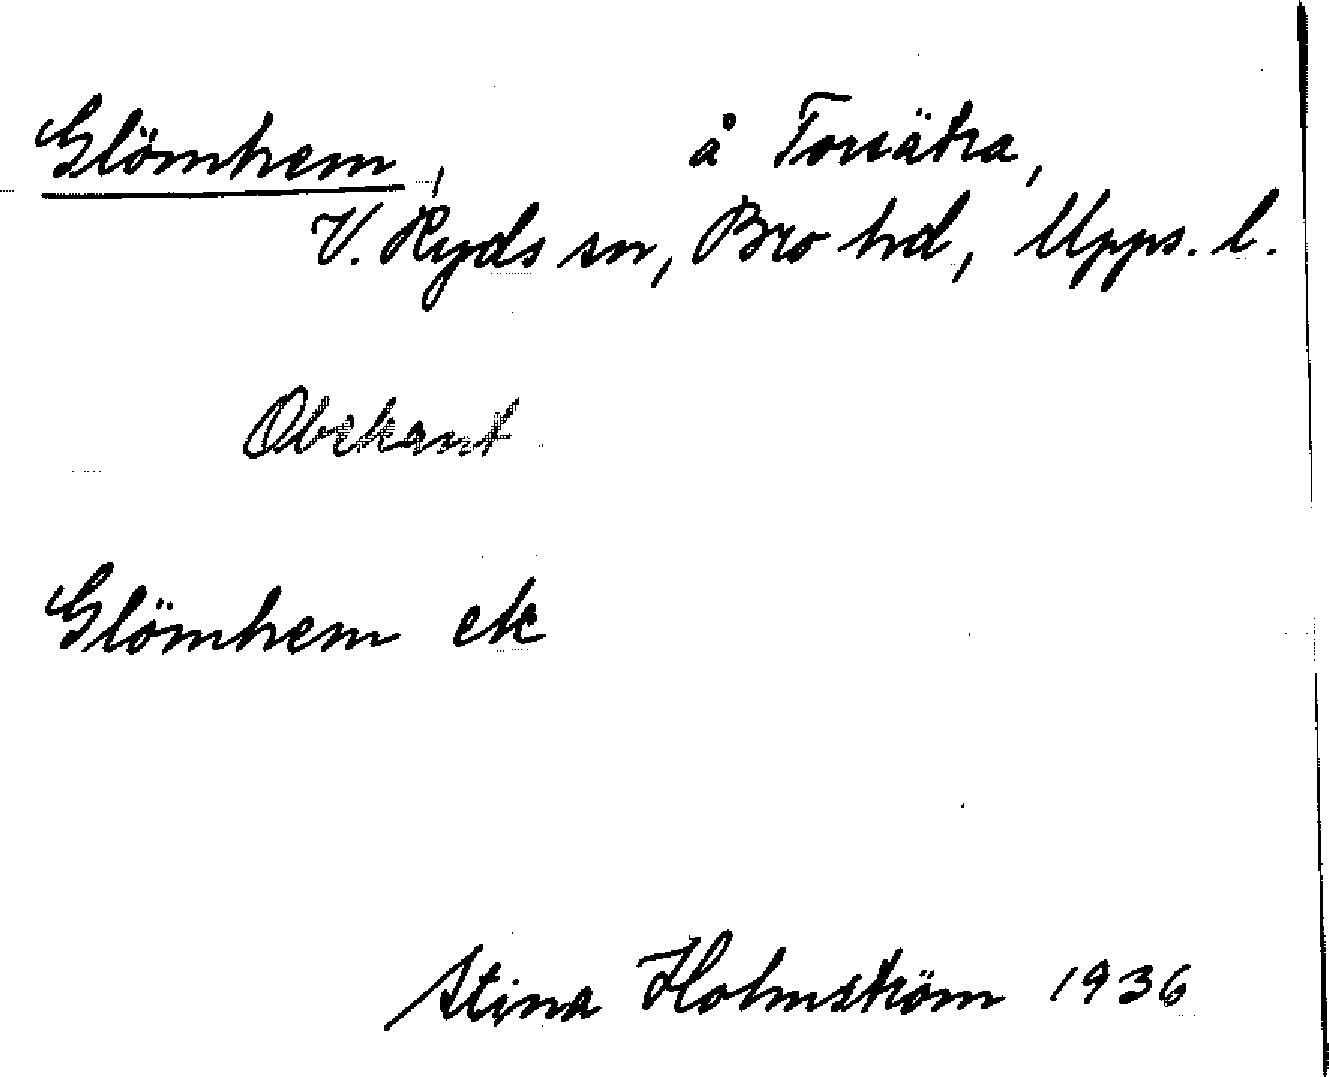 Glömhem, å Torsätra,
V. Ryds sn, Bro hd, Upps. l.
Obekant
Glömhem ek
Stina Holmström 1936